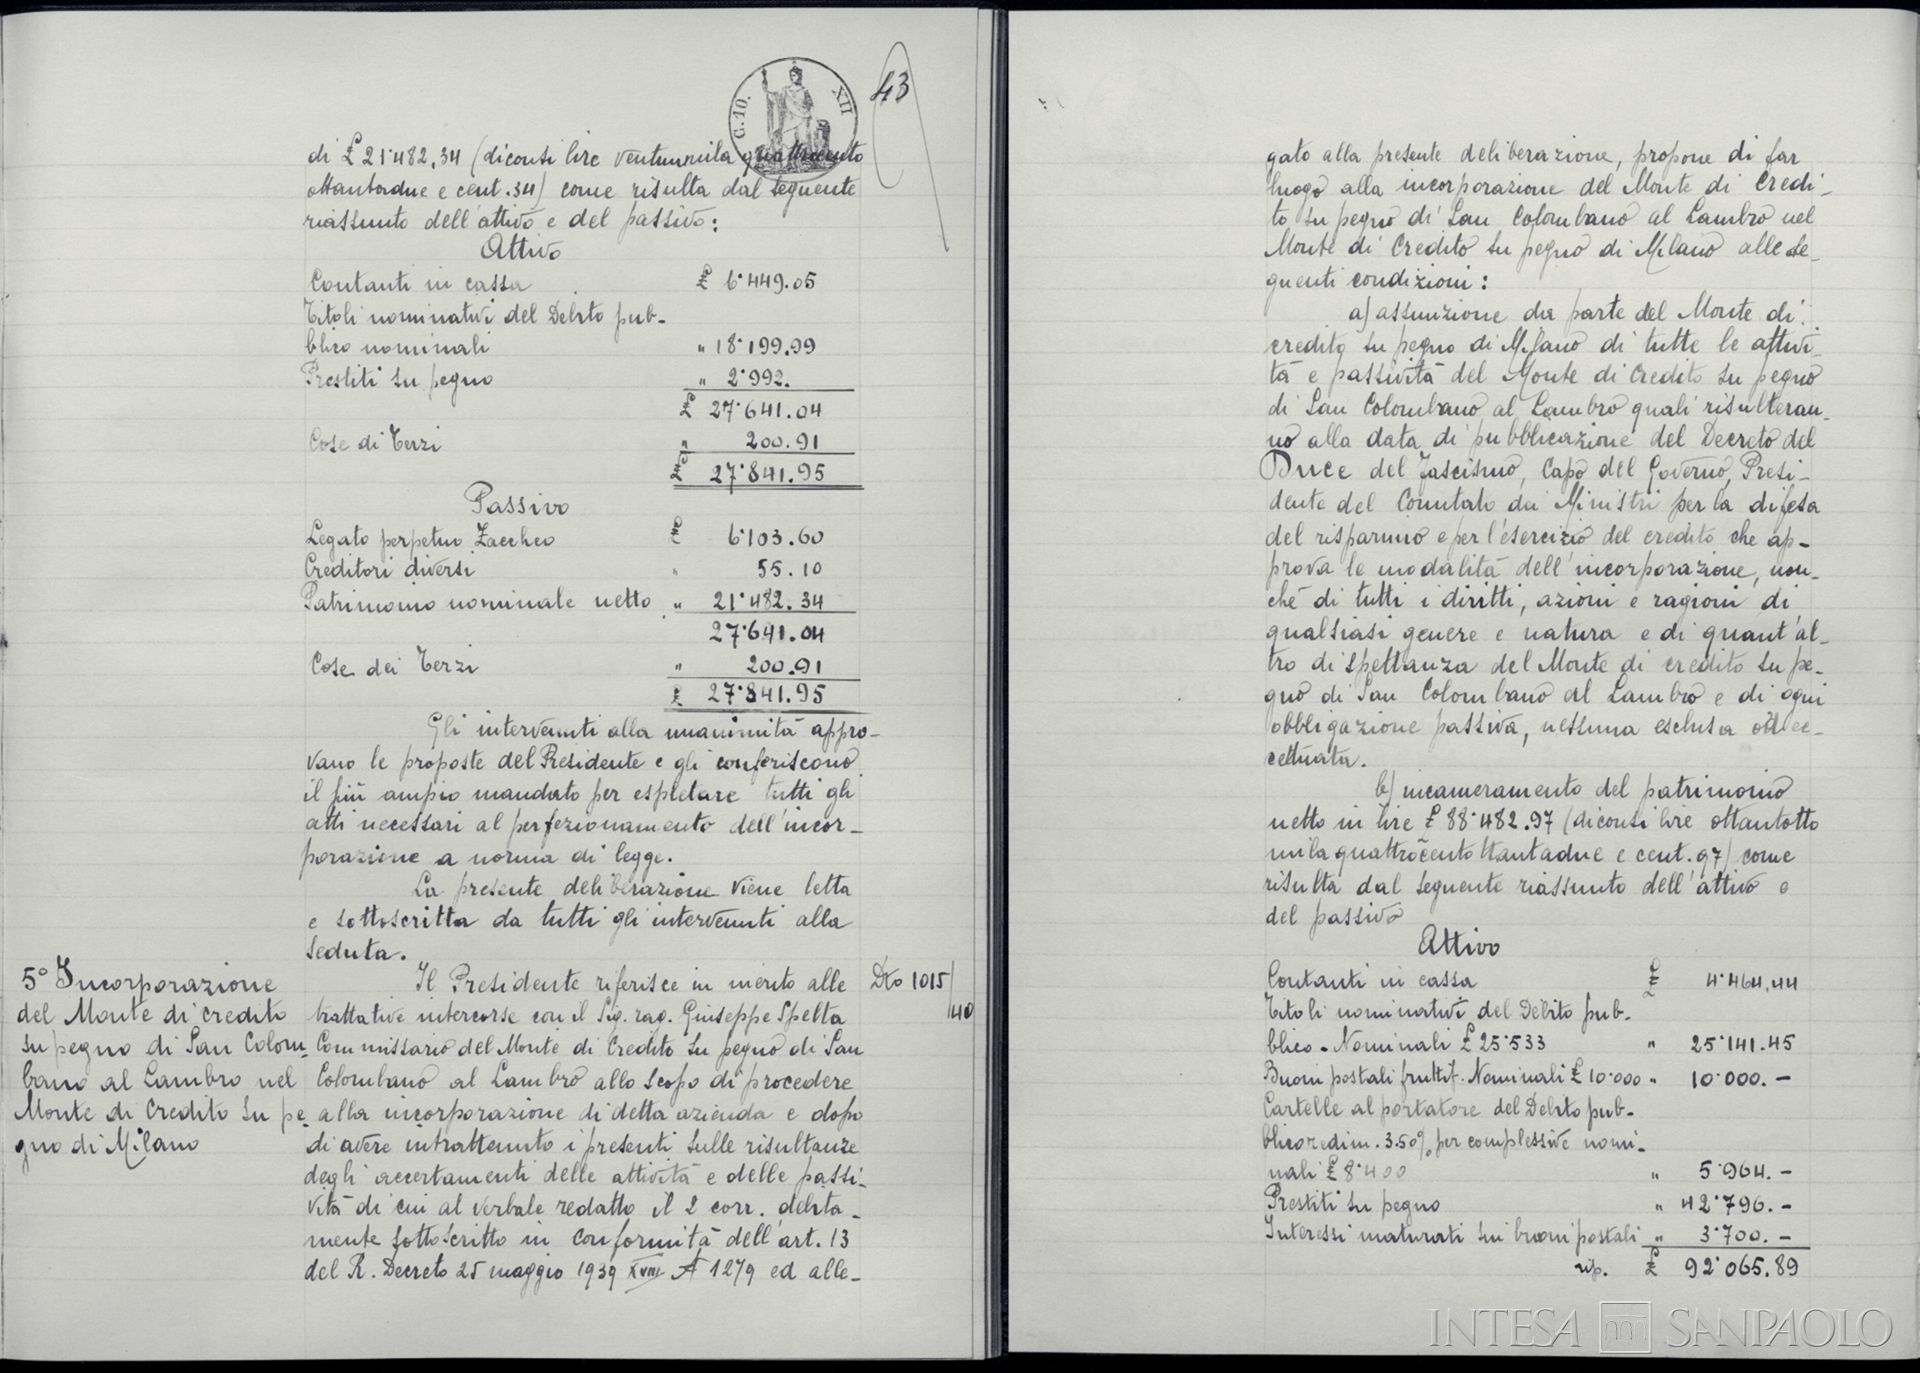 C. 10. XII
43
di £ 21'482,34 (diconsi lire ventunmila quattrocento
ottantadue e cent. 34) come risulta dal seguente
riassunto dell'attivo e del passivo:
Attivo
Contanti in cassa £ 6'449.05
Titoli nominativi del Debito pub-
blico nominali " 18'199.99
Prestiti su pegno " 2'992.
£ 27'641.04
Cose di Terzi " 200.91
£ 27'841.95
Passivo
Legato perpetuo Zaccheo £ 6'103.60
Creditori diversi " 55.10
Patrimonio nominale netto " 21'482.34
27'641.04
Cose dei Terzi " 200.91
£ 27'841.95
Gli intervenuti alla unanimità appro-
vano le proposte del Presidente e gli conferiscono
il più ampio mandato per espletare tutti gli
atti necessari al perfezionamento dell'incor-
porazione a norma di legge.
La presente deliberazione viene letta
e sottoscritta da tutti gli intervenuti alla
seduta.
5° Incorporazione
del Monte di credito
su pegno di San Colom-
bano al Lambro nel
Monte di Credito su pe-
gno di Milano
Il Presidente riferisce in merito alle
trattative intercorse con il Sig. rag. Giuseppe Spelta
Commissario del Monte di Credito su pegno di San
Colombano al Lambro allo scopo di procedere
alla incorporazione di detta azienda e dopo
di avere intrattenuto i presenti sulle risultanze
degli accertamenti delle attività e delle passi-
vità di cui al verbale redatto il 2 corr. debita-
mente sottoscritto in conformità dell'art. 13
del R. Decreto 25 maggio 1939 XVII N 1279 ed alle-
Dto 1015/40
gato alla presente deliberazione, propone di far
luogo alla incorporazione del Monte di Credi-
to su pegno di San Colombano al Lambro nel
Monte di Credito su pegno di Milano alle se-
guenti condizioni:
a) assunzione da parte del Monte di
credito su pegno di Milano di tutte le attivi-
tà e passività del Monte di Credito su pegno
di San Colombano al Lambro quali risulteran-
no alla data di pubblicazione del Decreto del
Duce del Fascismo, Capo del Governo, Presi-
dente del Comitato dei Ministri per la difesa
del risparmio e per l'esercizio del credito che ap-
prova le modalità dell'incorporazione, non-
ché di tutti i diritti, azioni e ragioni di
qualsiasi genere e natura e di quant'al-
tro di spettanza del Monte di credito su pe-
gno di San Colombano al Lambro e di ogni
obbligazione passiva, nessuna esclusa od ec-
cettuata.
b) incameramento del patrimonio
netto in lire £ 88'482.97 (diconsi lire ottantotto
mila quattrocentottantadue e cent. 97) come
risulta dal seguente riassunto dell'attivo e
del passivo
Attivo
Contanti in cassa £ 4'464,44
Titoli nominativi del Debito pub-
blico - Nominali £ 25'533 " 25'141.45
Buoni postali fruttif. Nominali £ 10'000 " 10'000.-
Cartelle al portatore del Debito pub-
blico redim. 3.50% per complessive nomi-
nali £ 8'400 " 5'964.-
Prestiti su pegno " 42'796.-
Interessi maturati sui buoni postali " 3'700.-
rip. £ 92'065.89
INTESA SANPAOLO